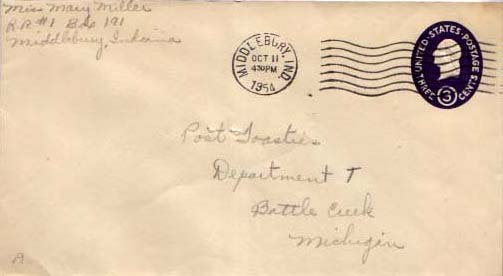 Miss Mary Miller
R.R #1 Box 191
Middlebury, Indiana
MIDDLEBURY, IND.
OCT 11
4 30 PM
1954
UNITED·STATES·POSTAGE
THREE 3 CENTS
Post Toasties
Department T
Battle Creek
Michigin
A